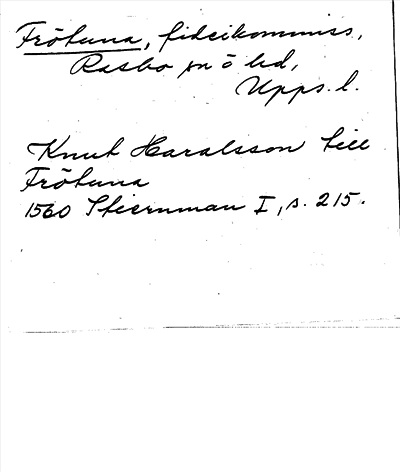 Frötuna, fideikommiss,
Rasbo sn o hd,
Upps. l.
Knut Haraldsson till
Frötuna
1560 Stiernman I, s. 215.